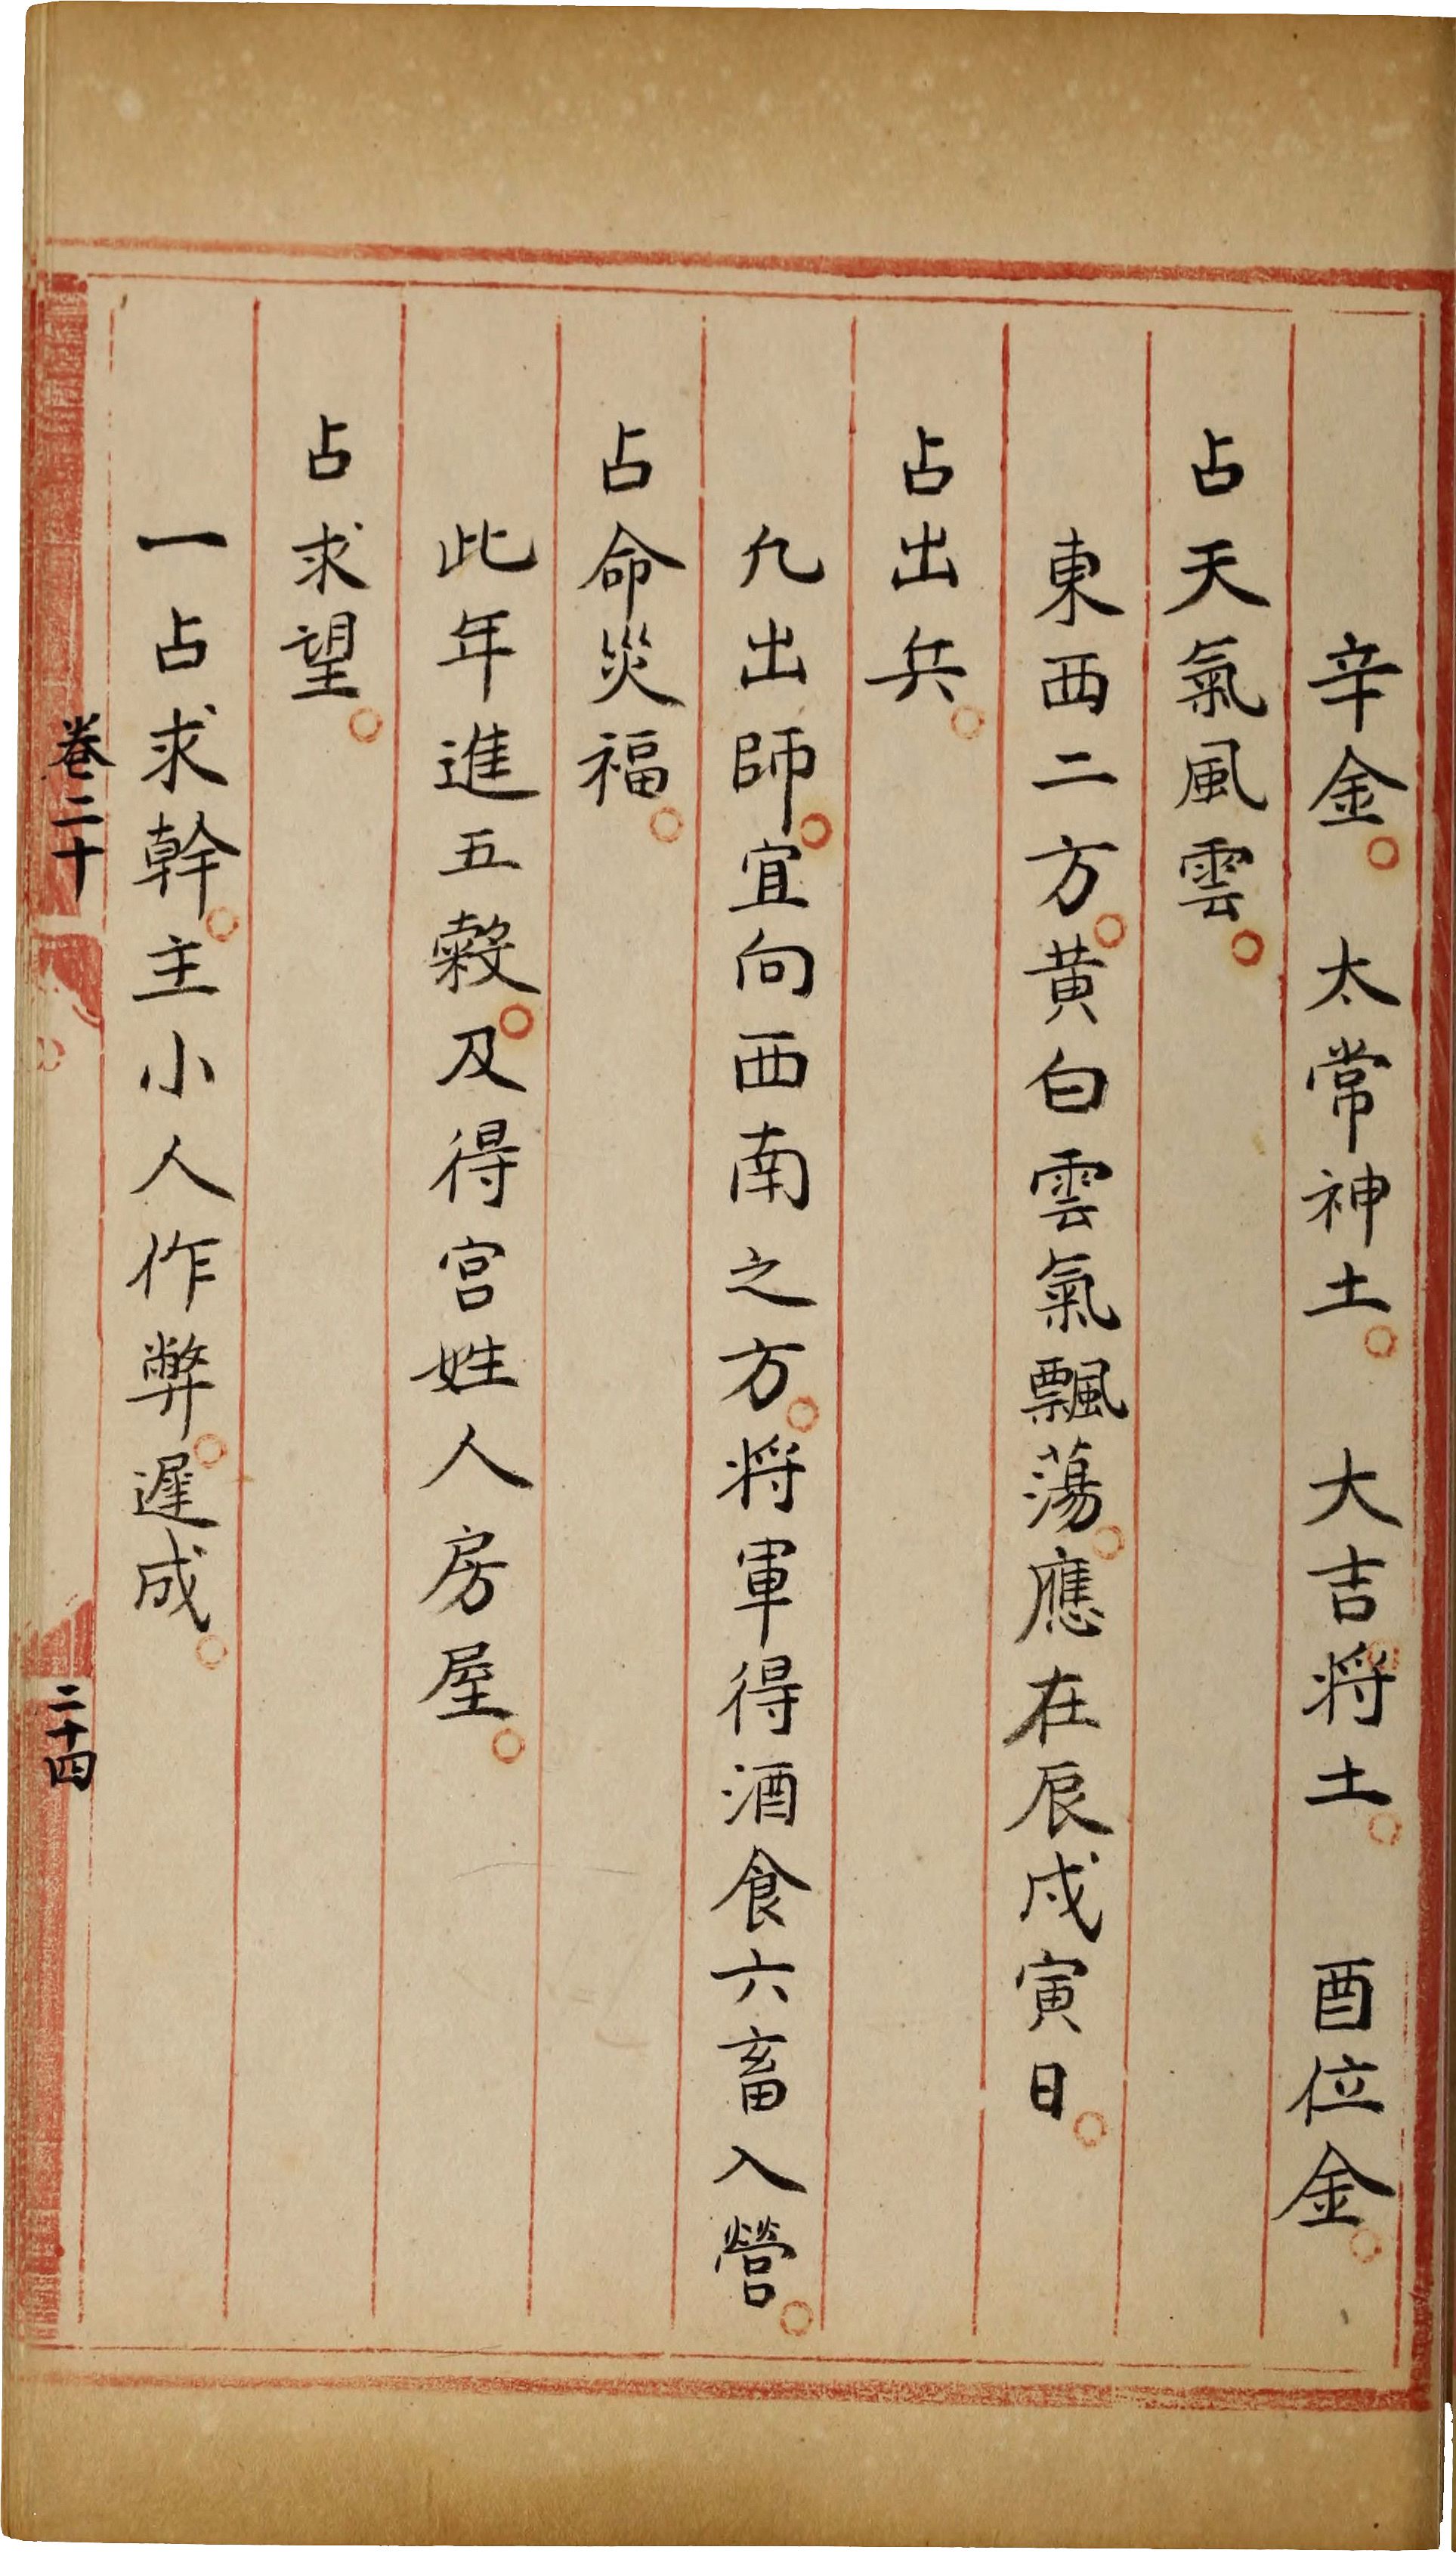 辛金。太常神土。大吉将土。酉位金。
占天氣風雲。
東西二方。黄白雲氣飄蕩。應在辰戌寅日。
占出兵。
凢出師。宜向西南之方。将軍得酒食六畜入營。
占命災福。
此年進五穀。及得宫姓人房屋。
占求望。
一占求幹。主小人作弊。遲成。
卷二十
二十四